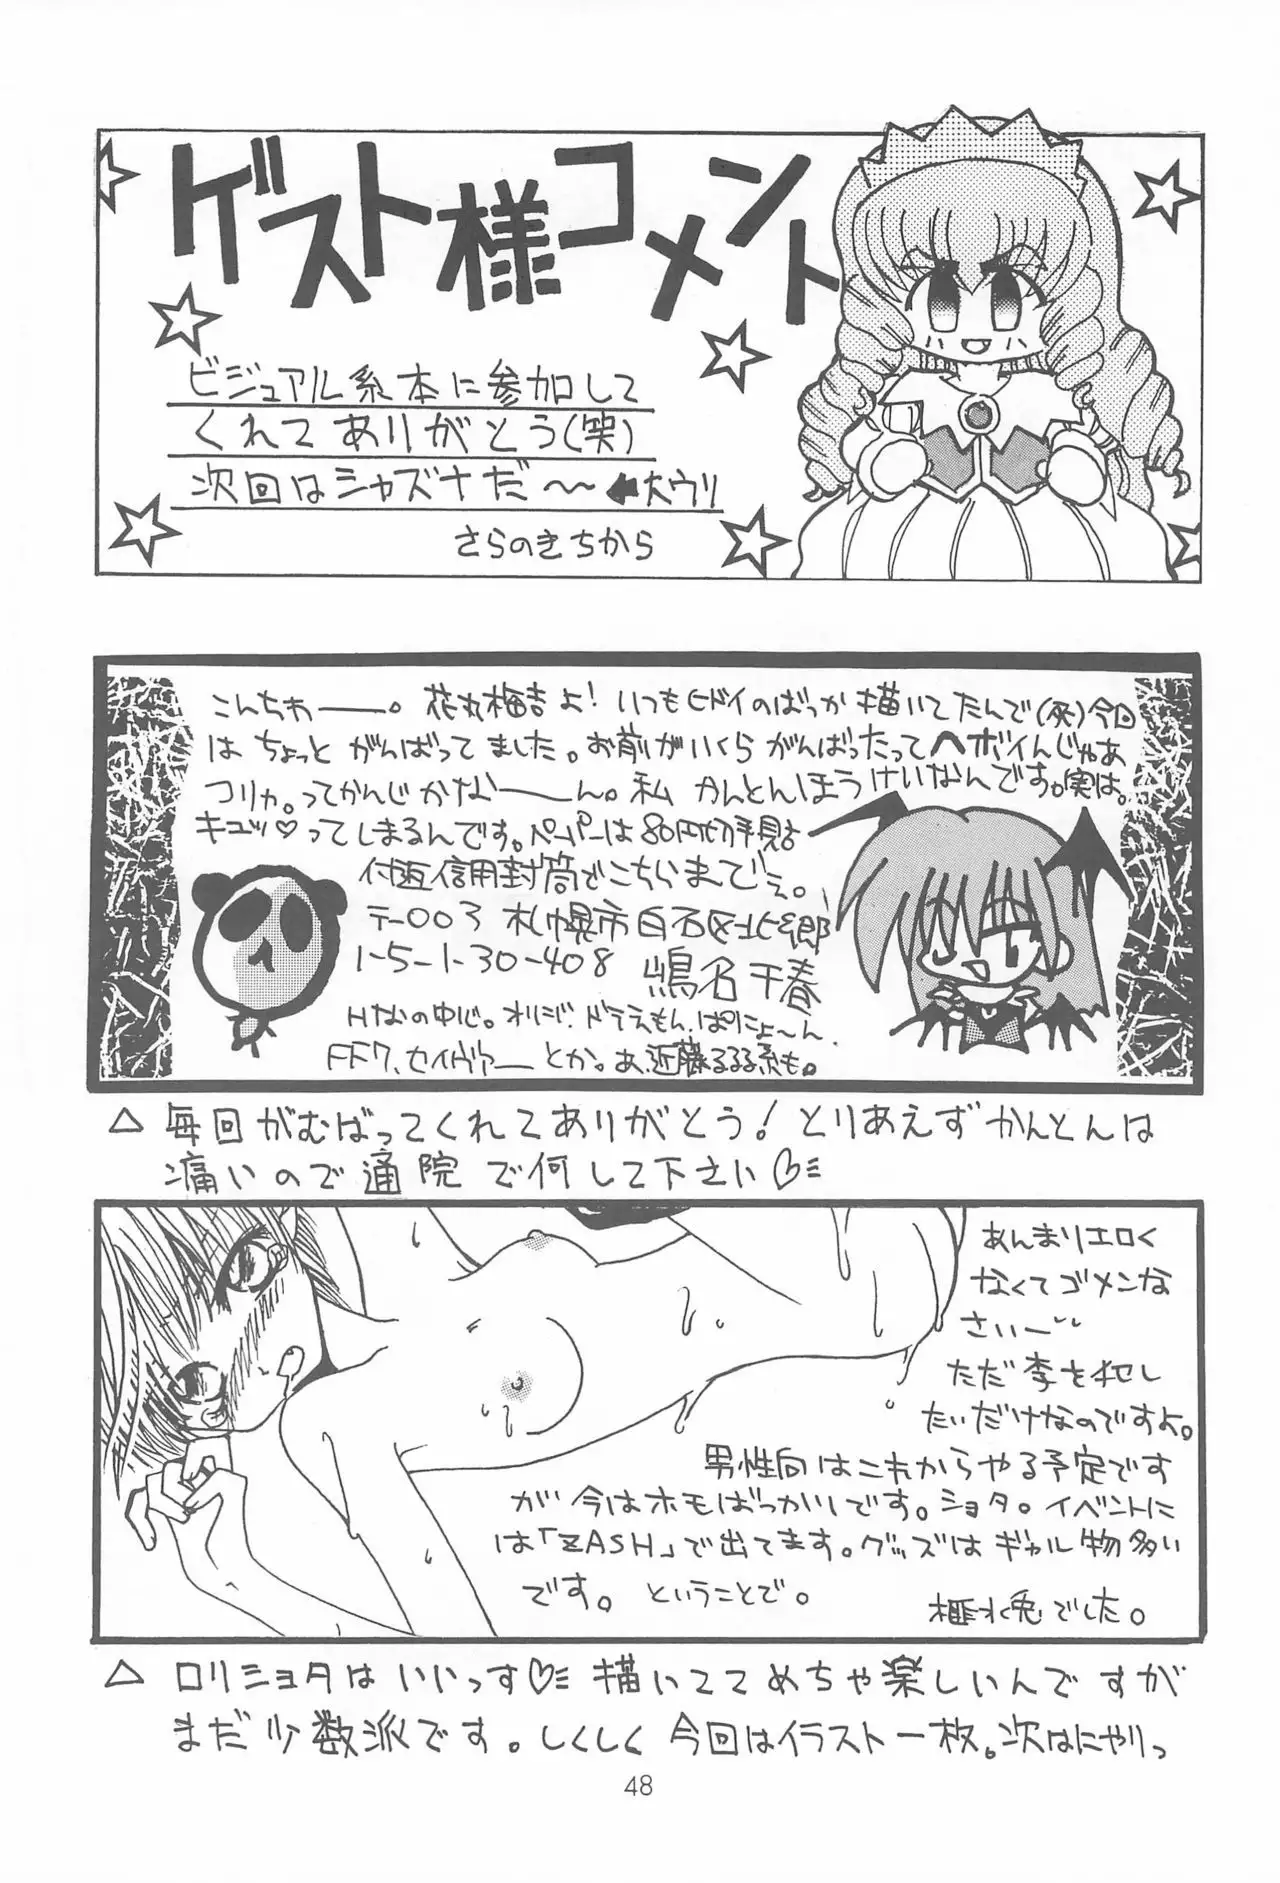 ゲスト様コメント
ビジュアル系本に参加して
くれてありがとう(笑)
次回はシャズナだ〜 大ウソ
さらのきちから
こんちわ——。花丸梅吉よ！いつもヒドイのばっか描いてたんで(死)今回
はちょっとがんばってました。お前がいくらがんばったってヘボイんじゃあ
コリャ。ってかんじかな——ん。私かんとんほうけいなんです。実は。
キュッ♡ってしまるんです。ペーパーは80円切手貼よ
返信用封筒でこちらまでぇ。
〒003 札幌市白石区北郷
1-5-1-30-408
Hなの中心。オリジ、ドラえもん、ぱにょ〜ん、
FF7、セイヴァーとか。あ、近藤るるる系も。
△ 毎回がむばってくれてありがとう！とりあえずかんとんは
痛いので通院で何して下さい♡
あんまりエロく
なくてゴメンな
さいー
ただ李を犯し
たいだけなのですよ。
男性向はこれからやる予定です
が今はホモばっかいです。ショタ。イベントに
は「ZASH」で出てます。グッズはギャル物多い
です。ということで。
でした。
△ ロリショタはいいっす♡描いててめちゃ楽しいんですが
まだ少数派です。しくしく今回はイラスト一枚。次はにやりっ
48